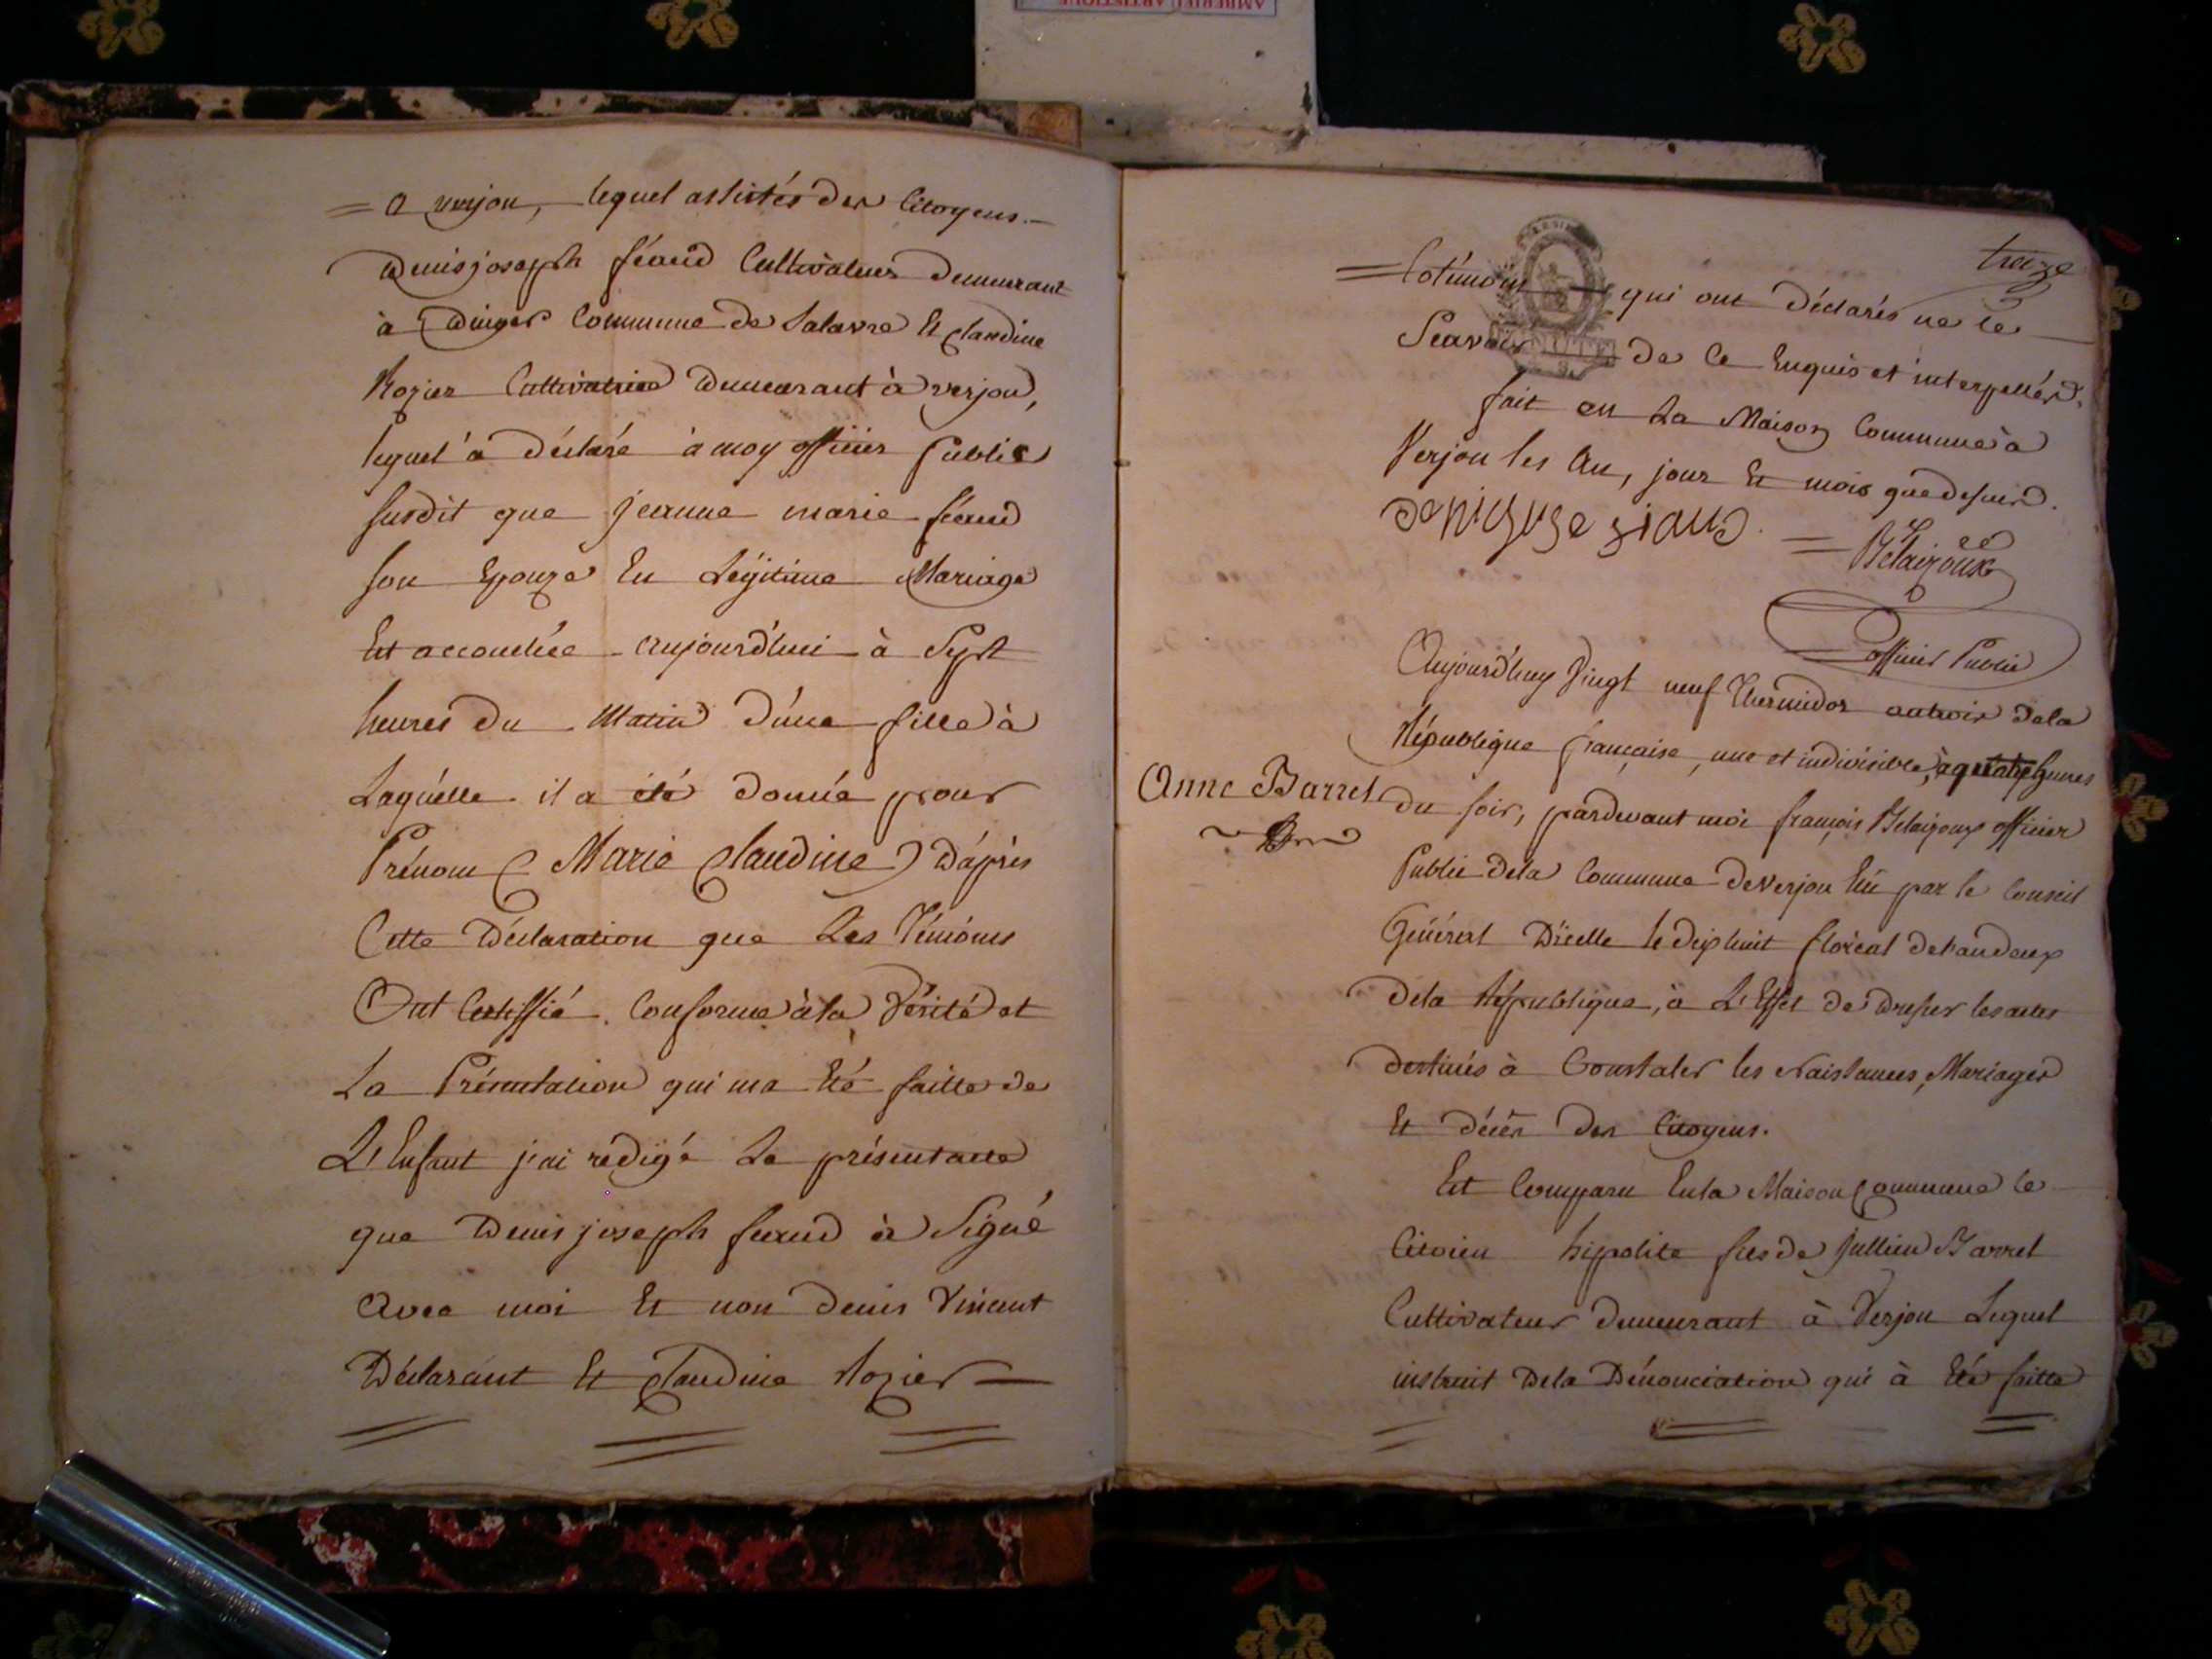 = a verjon, lequel assistés des Citoyens. -
Denis joseph féaud Cultivateur Demeurant
à Dinger Commune de Salavre Et Claudine
Rozier Cultivatrice Demeurant à verjon,
lequel à déclaré à moy officier Public
susdit que jeanne marie féaud
son Epouze En Légitime Mariage
Est accouchée aujourd'hui à Sept
heures du Matin d'une fille à
Laquelle il a été donné pour
Prénom ( Marie Claudine ) D'après
Cette Déclaration que Les Témoins
Ont Certiffié Conforme à la Vérité et
La Présentation qui ma Eté faitte de
L'Enfant j'ai rédigé Le présent acte
que Denis joseph feaud à Signé
Avec moi Et non Denis Vincent
Déclarant Et Claudine Rozier —
treize
= Cotémoin — qui ont Déclarés ne le
Scavoir de Ce Enquis et interpellés.
fait en La Maison Commune à
Verjon les An, jour Et mois que dessus.
= Belaizoux
officier Public
Aujourd'huy Vingt neuf Thermidor an trois Dela
République française, une et indivisible, à heures
Anne Barret
du soir, pardevant moi françois Belaizoux officier
Public Dela Commune de Verjon Elû par le Conseil
Général D'icelle le dix huit floréal de l'an deux
Dela République, à L'Effet de Dresser les actes
destinés à Constater les Naissances, Mariages
Et décès des Citoyens.
Est Comparu En la Maison Commune le
Citoien hippolite fils de Jullien Barret
Cultivateur Demeurant à Verjon Lequel
instruit Dela Dénonciation qui à Eté faitte